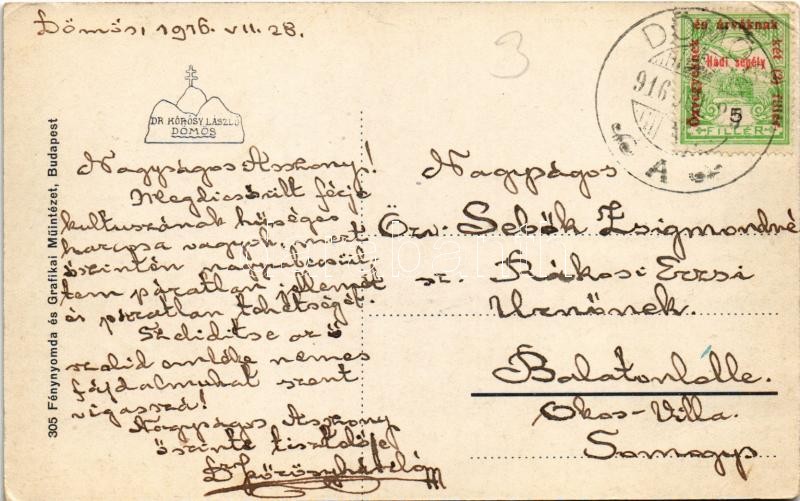 Dömös, 1916. VII. 28.
DR KŐRÖSY LÁSZLÓ
DÖMÖS
Nagyságos Asszony!
Megdicsőült férje
kultuszának hűséges
harcosa vagyok, mert
őszintén nagyrabecsül-
tem páratlan jellemét
és páratlan tehetségét.
Szelidítse az ő
szolid emléke nemes
fájdalmukat szent
vigasszá!
Nagyságos Asszony
őszinte tisztelője
Dr Kőrösy László
Nagyságos
Özv. Sebők Zsigmondné
sz. Rákosi Erzsi
Urnőnek.
Balatonlelle.
Okos-Villa.
Somogy
305 Fénynyomda és Grafikai Műintézet, Budapest
Özvegyeknek és árváknak két (2) fillér
Hadi segély
5
FILLÉR
916
3